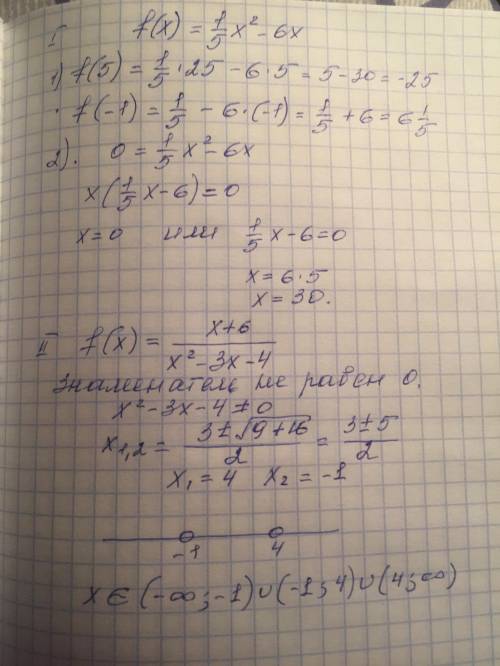 I f(x) = 1/5 x² - 6x
1) f(5) = 1/5 · 25 - 6 · 5 = 5 - 30 = -25
· f(-1) = 1/5 - 6 · (-1) = 1/5 + 6 = 6 1/5
2). 0 = 1/5 x² - 6x
x(1/5 x - 6) = 0
x = 0 или 1/5 x - 6 = 0
x = 6 · 5
x = 30.
II f(x) = (x+6)/(x² - 3x - 4)
Знаменатель не равен 0.
x² - 3x - 4 ≠ 0
x₁,₂ = (3 ± √(9+16))/2 = (3 ± 5)/2
x₁ = 4 x₂ = -1
-1 4
x ∈ (-∞; -1) ∪ (-1; 4) ∪ (4; ∞)